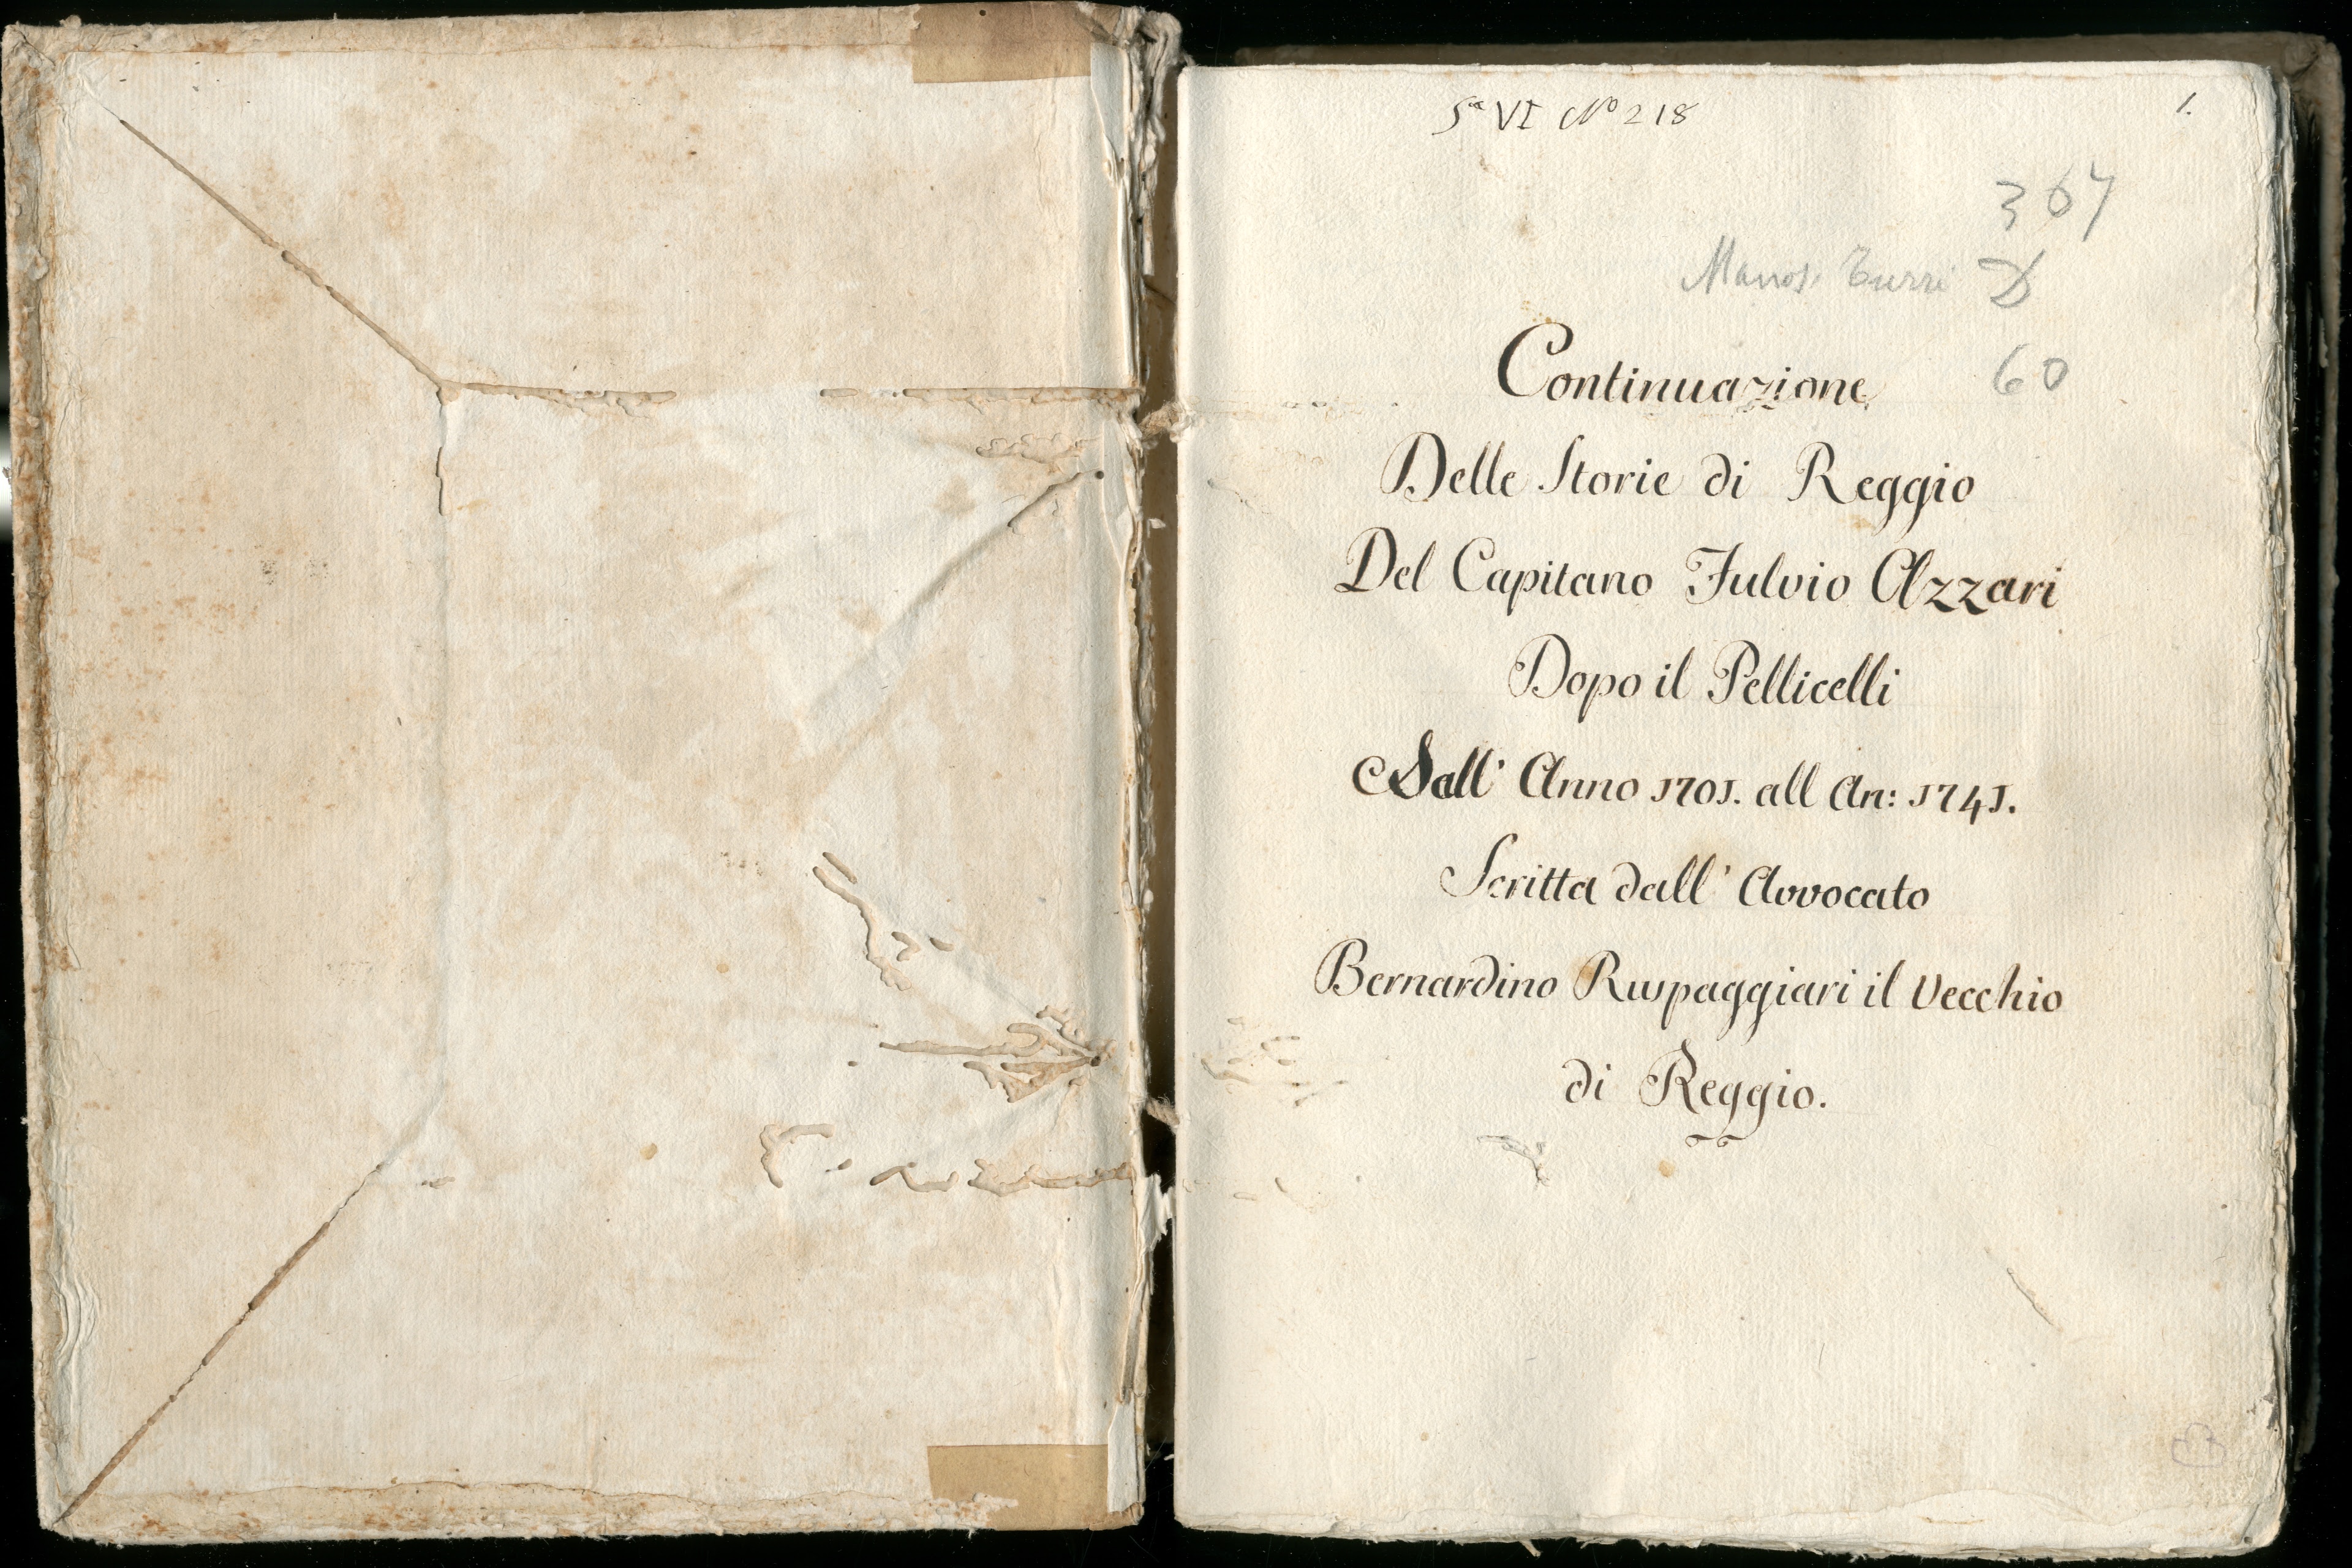 Sª VI Nº 218
1.
367
Manos. Turri D
60
Continuazione
Delle Storie di Reggio
Del Capitano Fulvio Azzari
Dopo il Pellicelli
Dall' Anno 1701. all An: 1741.
Scritta dall' Avvocato
Bernardino Ruspaggiari il Vecchio
di Reggio.